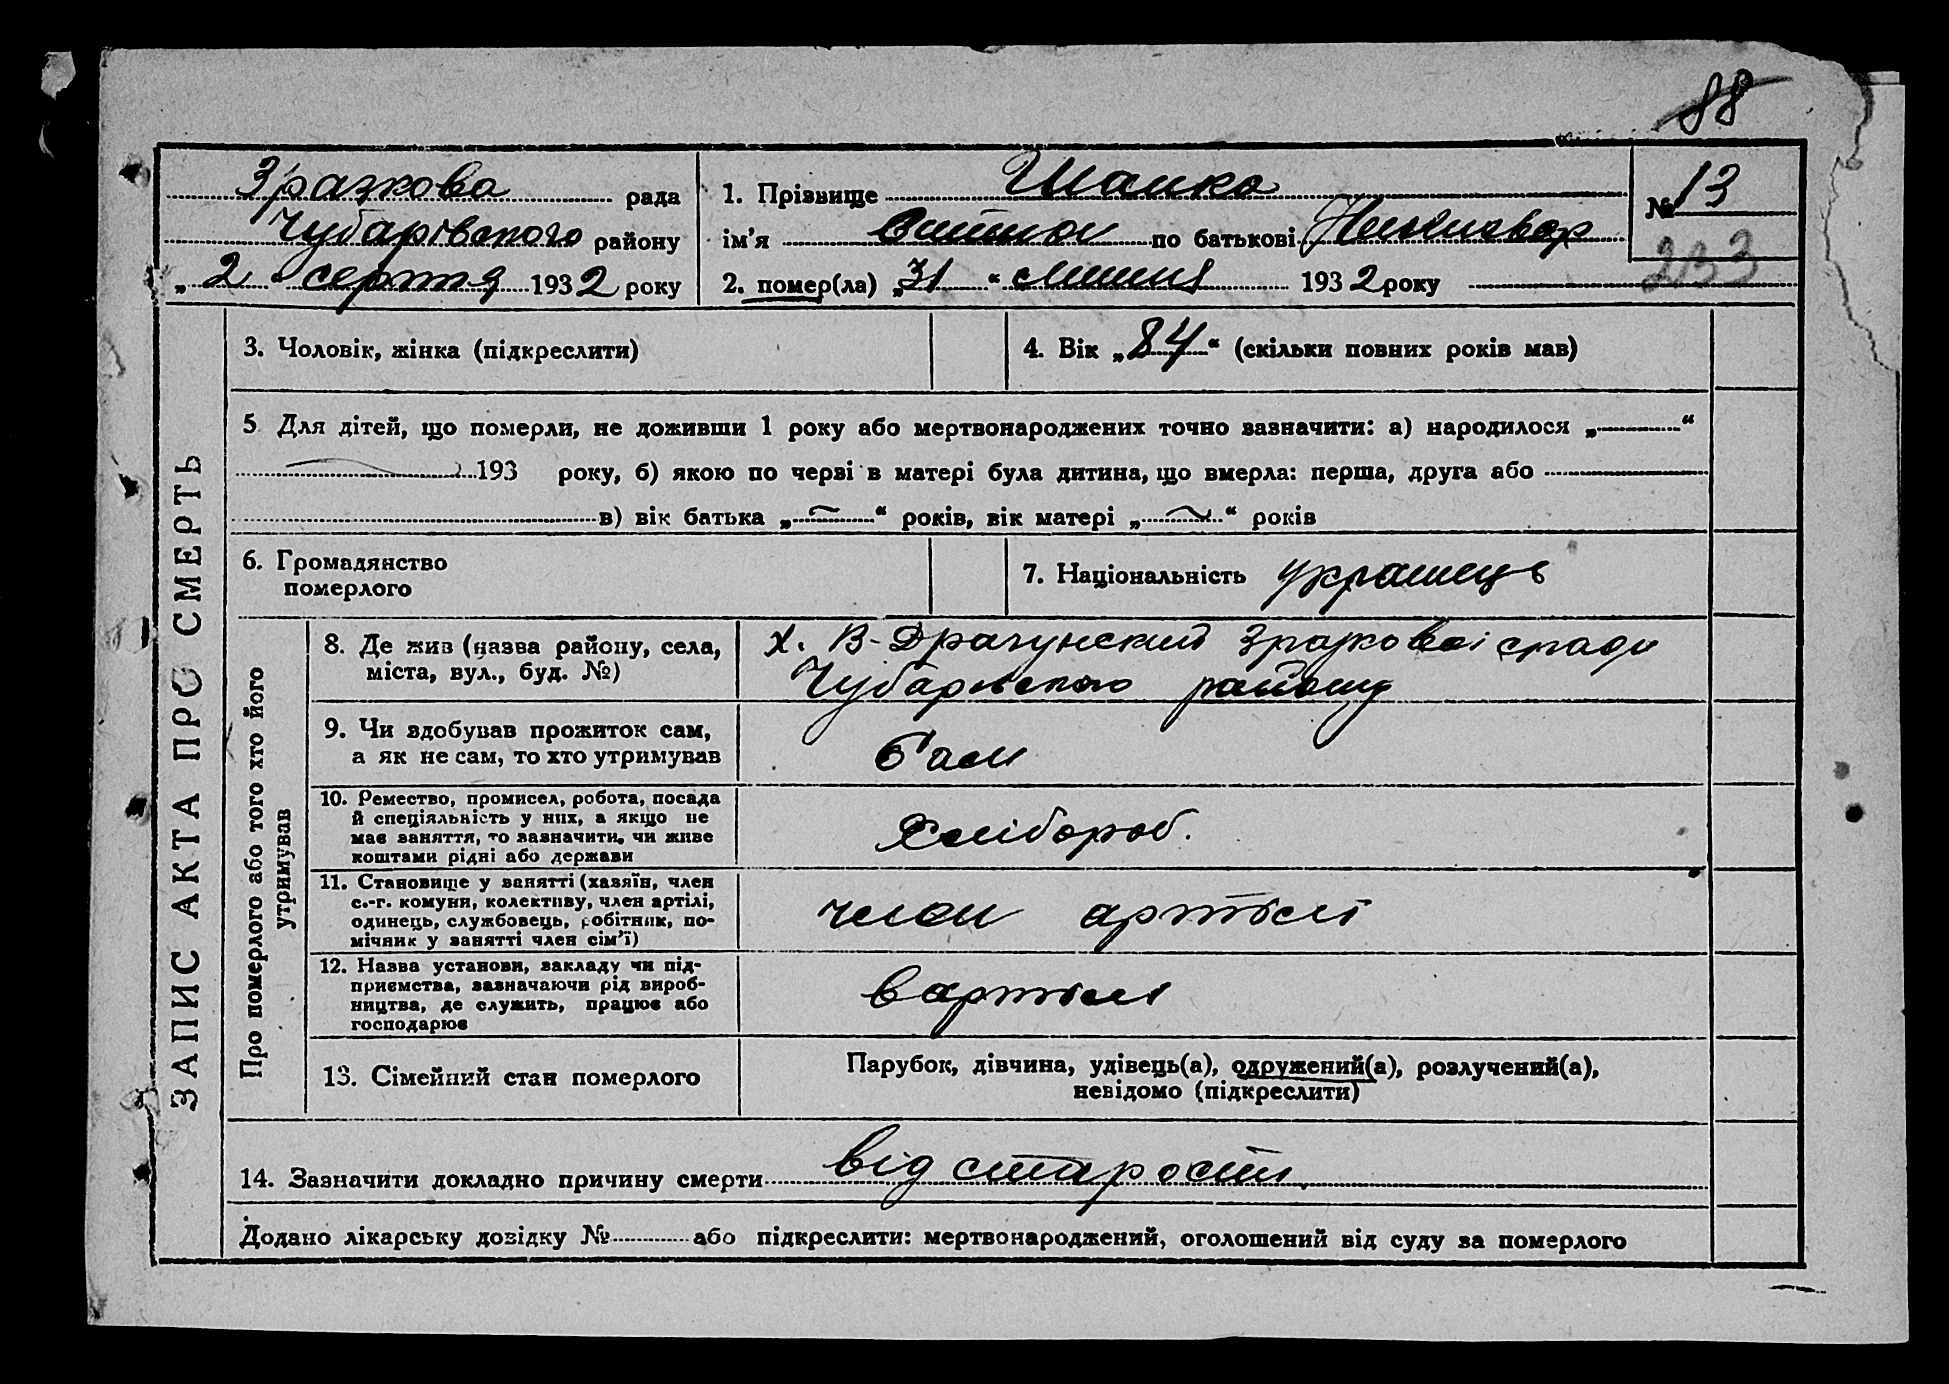 88
Зразкова рада
Чубарівського району
„ 2 “ серпня 1932 року
1. Прізвище Шапка
ім’я по батькові
2. помер(ла) „31“ липня 1932 року
№ 13
233
ЗАПИС АКТА ПРО СМЕРТЬ
3. Чоловік, жінка (підкреслити)
4. Вік „84“ (скільки повних років мав)
5 Для дітей, що померли, не доживши 1 року або мертвонароджених точно зазначити: а) народилося „ “
193 року, б) якою по черві в матері була дитина, що вмерла: перша, друга або
в) вік батька „ “ років, вік матері „ “ років
6. Громадянство
померлого
7. Національність украінець
Про померлого або того хто його
утримував
8. Де жив (назва району, села,
міста, вул., буд. №)
х. В-Драгунский Зразковоі сради
Чубарівського району
9. Чи здобував прожиток сам,
а як не сам, то хто утримував
сам
10. Ремество, промисел, робота, посада
й спеціяльність у них, а якщо не
має заняття, то зазначити, чи живе
коштами рідні або держави
Хлібороб.
11. Становище у занятті (хазяїн, член
с.-г. комуни, колективу, член артілі,
одинець, службовець, робітник, по-
мічник у занятті член сім’ї)
член артілі
12. Назва установи, закладу чи під-
приємства, зазначаючи рід вироб-
ництва, де служить, працює або
господарює
вартілі
13. Сімейний стан померлого
Парубок, дівчина, удівець(а), одружений(а), розлучений(а),
невідомо (підкреслити)
14. Зазначити докладно причину смерти від старости.
Додано лікарську довідку № або підкреслити: мертвонароджений, оголошений від суду за померлого